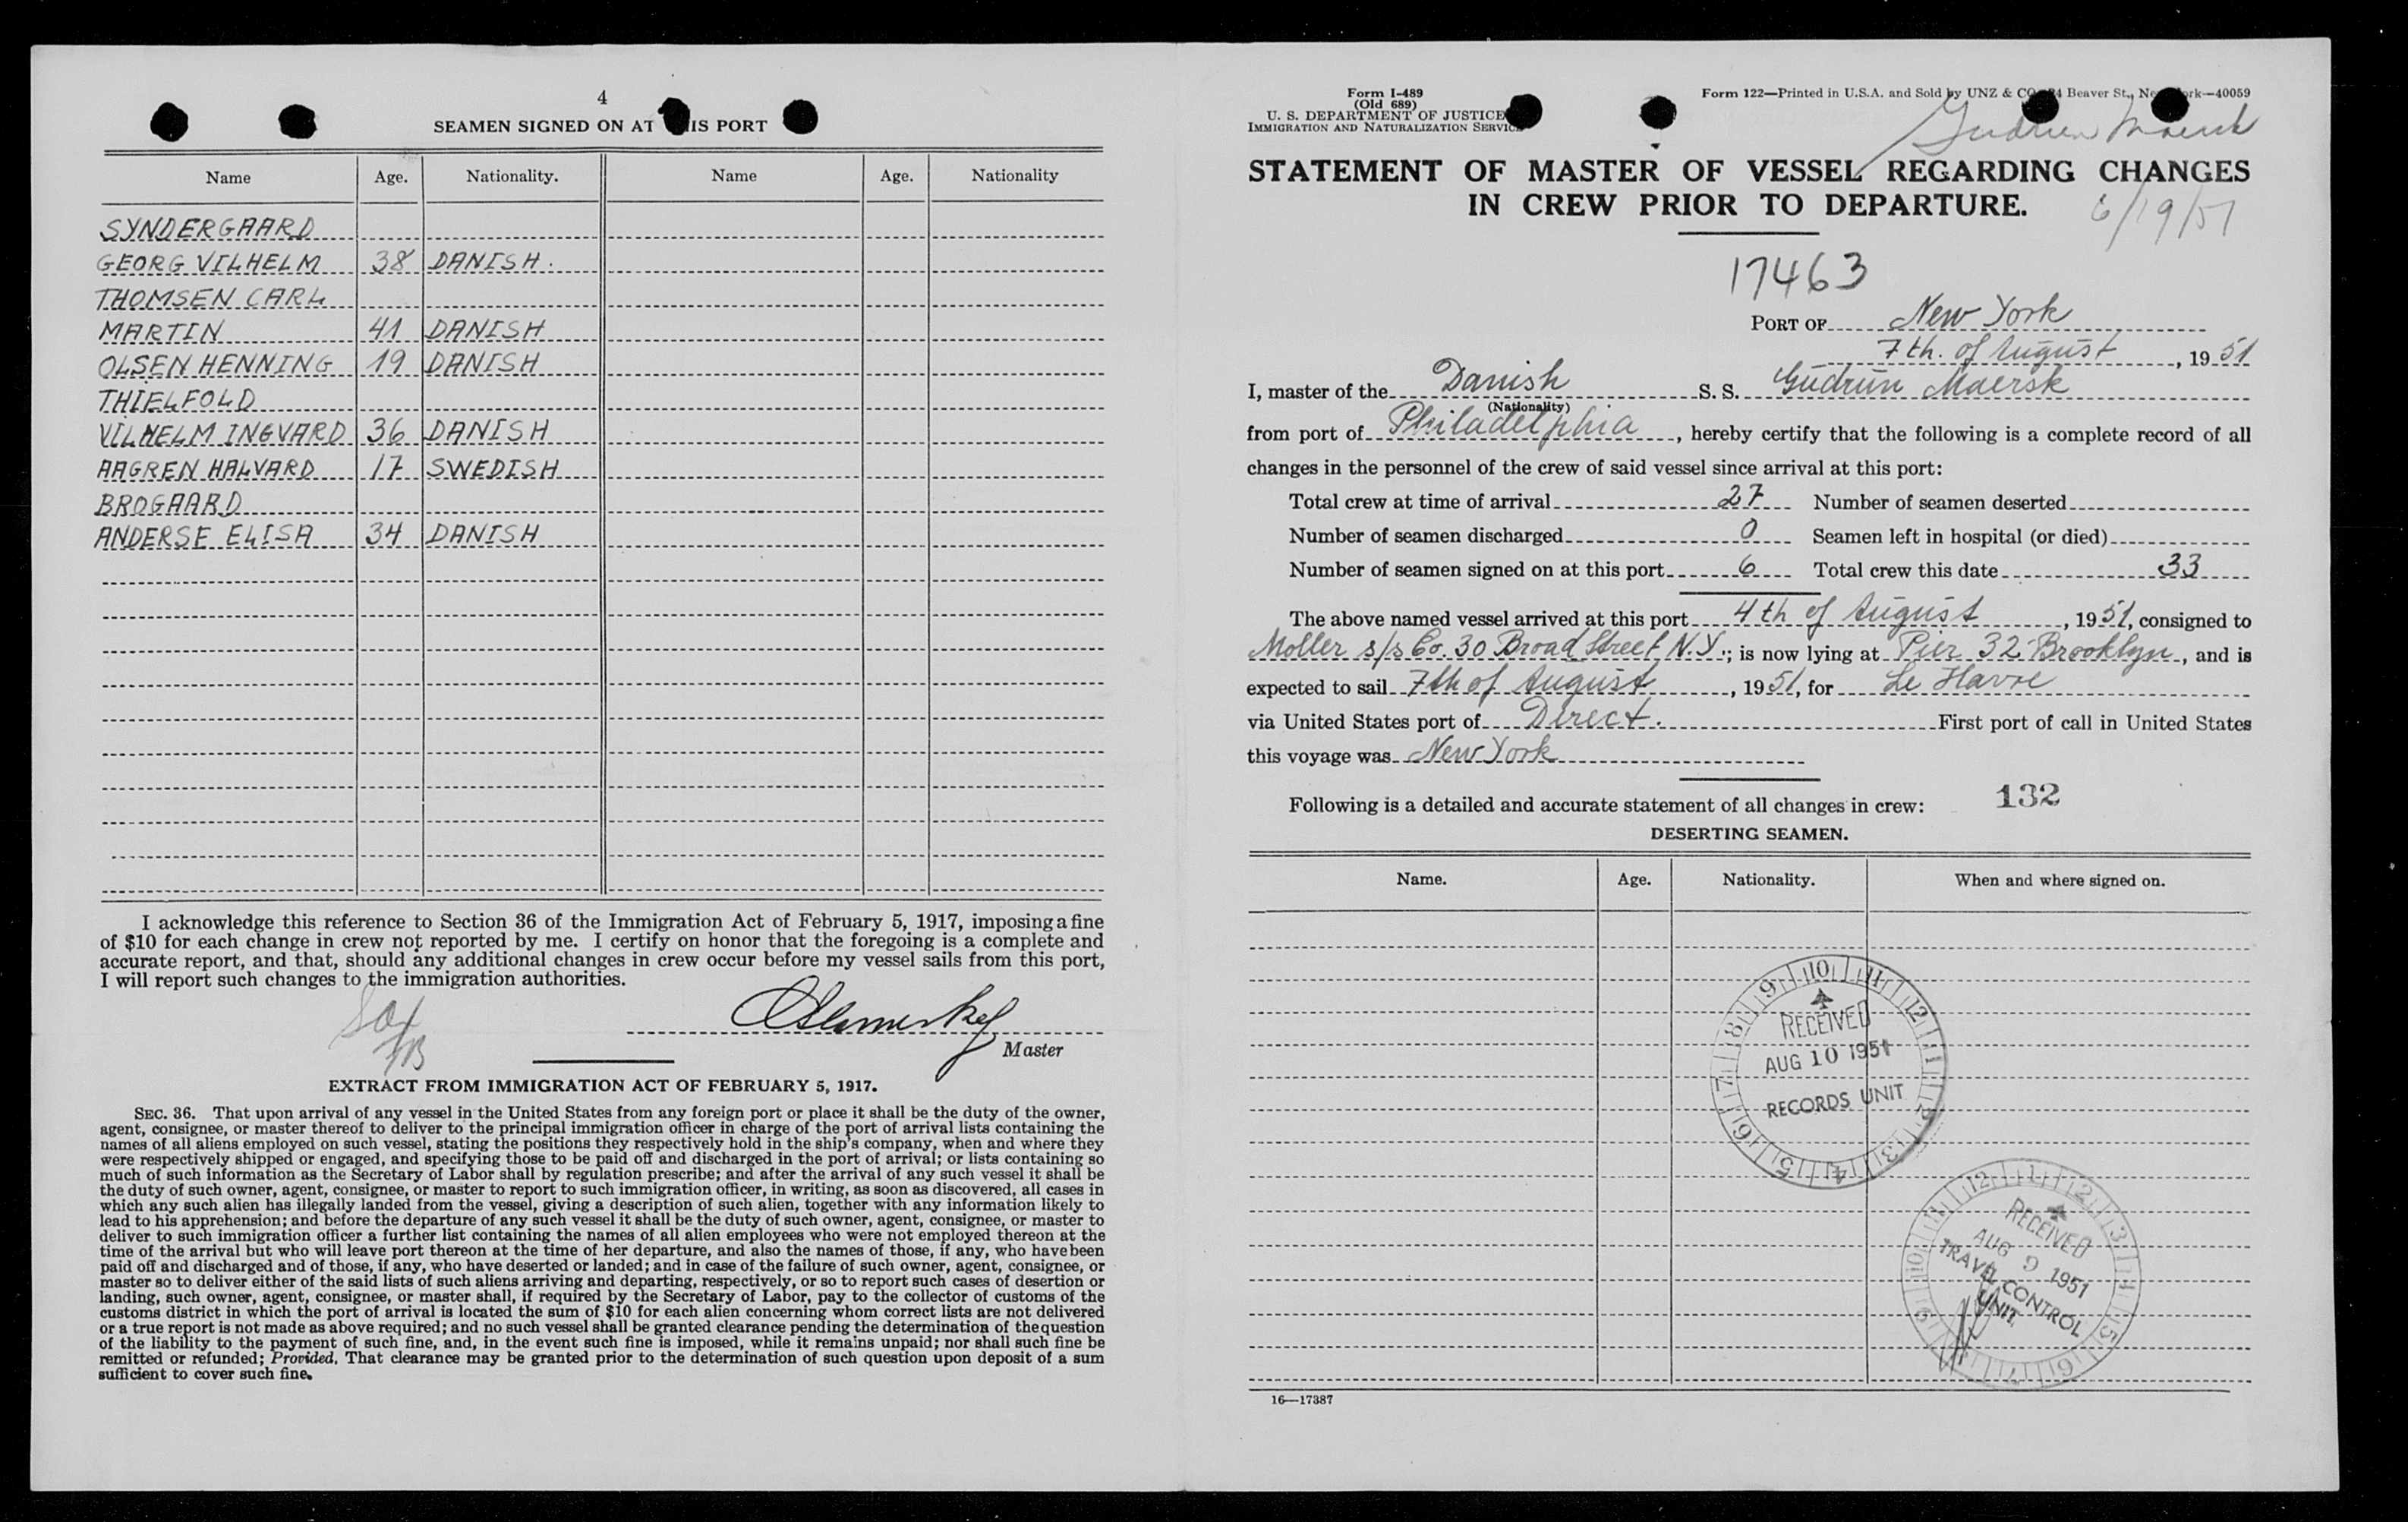 4
SEAMEN SIGNED ON AT THIS PORT
Name Age. Nationality. Name Age. Nationality
SYNDERGAARD
GEORG VILHELM 38 DANISH.
THOMSEN CARL
MARTIN 41 DANISH
OLSEN HENNING 19 DANISH
THIELFOLD
VILHELM INGVARD 36 DANISH
AAGREN HALVARD 17 SWEDISH
BROGAARD
ANDERSE ELISA 34 DANISH
I acknowledge this reference to Section 36 of the Immigration Act of February 5, 1917, imposing a fine
of $10 for each change in crew not reported by me. I certify on honor that the foregoing is a complete and
accurate report, and that, should any additional changes in crew occur before my vessel sails from this port,
I will report such changes to the immigration authorities.
Master
EXTRACT FROM IMMIGRATION ACT OF FEBRUARY 5, 1917.
SEC. 36. That upon arrival of any vessel in the United States from any foreign port or place it shall be the duty of the owner,
agent, consignee, or master thereof to deliver to the principal immigration officer in charge of the port of arrival lists containing the
names of all aliens employed on such vessel, stating the positions they respectively hold in the ship's company, when and where they
were respectively shipped or engaged, and specifying those to be paid off and discharged in the port of arrival; or lists containing so
much of such information as the Secretary of Labor shall by regulation prescribe; and after the arrival of any such vessel it shall be
the duty of such owner, agent, consignee, or master to report to such immigration officer, in writing, as soon as discovered, all cases in
which any such alien has illegally landed from the vessel, giving a description of such alien, together with any information likely to
lead to his apprehension; and before the departure of any such vessel it shall be the duty of such owner, agent, consignee, or master to
deliver to such immigration officer a further list containing the names of all alien employees who were not employed thereon at the
time of the arrival but who will leave port thereon at the time of her departure, and also the names of those, if any, who have been
paid off and discharged and of those, if any, who have deserted or landed; and in case of the failure of such owner, agent, consignee, or
master so to deliver either of the said lists of such aliens arriving and departing, respectively, or so to report such cases of desertion or
landing, such owner, agent, consignee, or master shall, if required by the Secretary of Labor, pay to the collector of customs of the
customs district in which the port of arrival is located the sum of $10 for each alien concerning whom correct lists are not delivered
or a true report is not made as above required; and no such vessel shall be granted clearance pending the determination of the question
of the liability to the payment of such fine, and, in the event such fine is imposed, while it remains unpaid; nor shall such fine be
remitted or refunded; Provided, That clearance may be granted prior to the determination of such question upon deposit of a sum
sufficient to cover such fine.
Form I-489
(Old 689)
U. S. DEPARTMENT OF JUSTICE
IMMIGRATION AND NATURALIZATION SERVICE
Form 122—Printed in U.S.A. and Sold by UNZ & CO. 24 Beaver St., New York—40059
Gudrun Maersk
STATEMENT OF MASTER OF VESSEL REGARDING CHANGES
IN CREW PRIOR TO DEPARTURE.
6/19/51
17463
PORT OF New York
7th. of August, 1951
I, master of the Danish S. S. Gudrun Maersk
(Nationality)
from port of Philadelphia, hereby certify that the following is a complete record of all
changes in the personnel of the crew of said vessel since arrival at this port:
Total crew at time of arrival 27 Number of seamen deserted
Number of seamen discharged 0 Seamen left in hospital (or died)
Number of seamen signed on at this port 6 Total crew this date 33
The above named vessel arrived at this port 4th of August, 1951, consigned to
Moller s/s Co. 30 Broad Street N.Y.; is now lying at Pier 32 Brooklyn, and is
expected to sail 7th of August, 1951, for Le Havre
via United States port of Direct. First port of call in United States
this voyage was New York
Following is a detailed and accurate statement of all changes in crew: 132
DESERTING SEAMEN.
Name. Age. Nationality. When and where signed on.
RECEIVED
AUG 10 1951
RECORDS UNIT
RECEIVED
AUG 9 1951
TRAVEL CONTROL
UNIT
16—17387